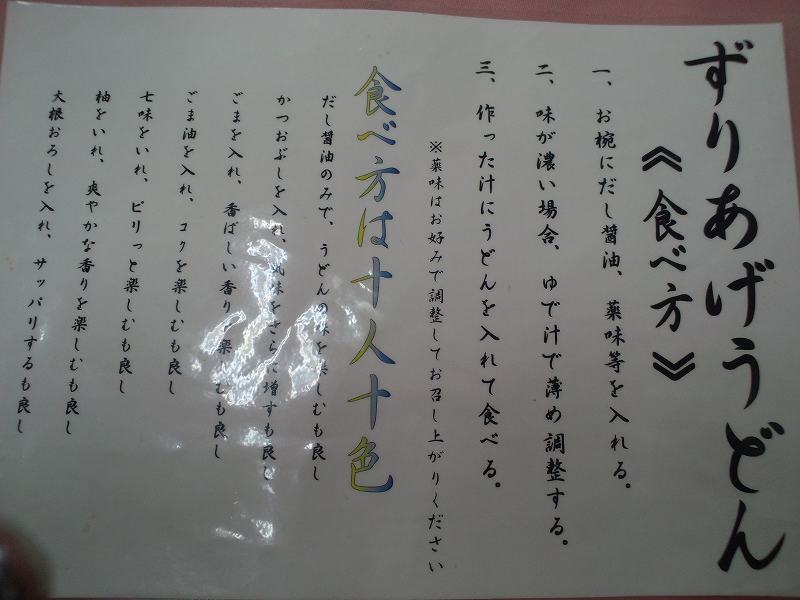 ずりあげうどん
《食べ方》
一、お椀にだし醤油、薬味等を入れる。
二、味が濃い場合、ゆで汁で薄め調整する。
三、作った汁にうどんを入れて食べる。
※薬味はお好みで調整してお召し上がりください
食べ方は十人十色
だし醤油のみで、うどんの味を楽しむも良し
かつおぶしを入れ、風味をさらに増すも良し
ごまを入れ、香ばしい香り楽しむも良し
ごま油を入れ、コクを楽しむも良し
七味をいれ、ピリっと楽しむも良し
柚をいれ、爽やかな香りを楽しむも良し
大根おろしを入れ、サッパリするも良し